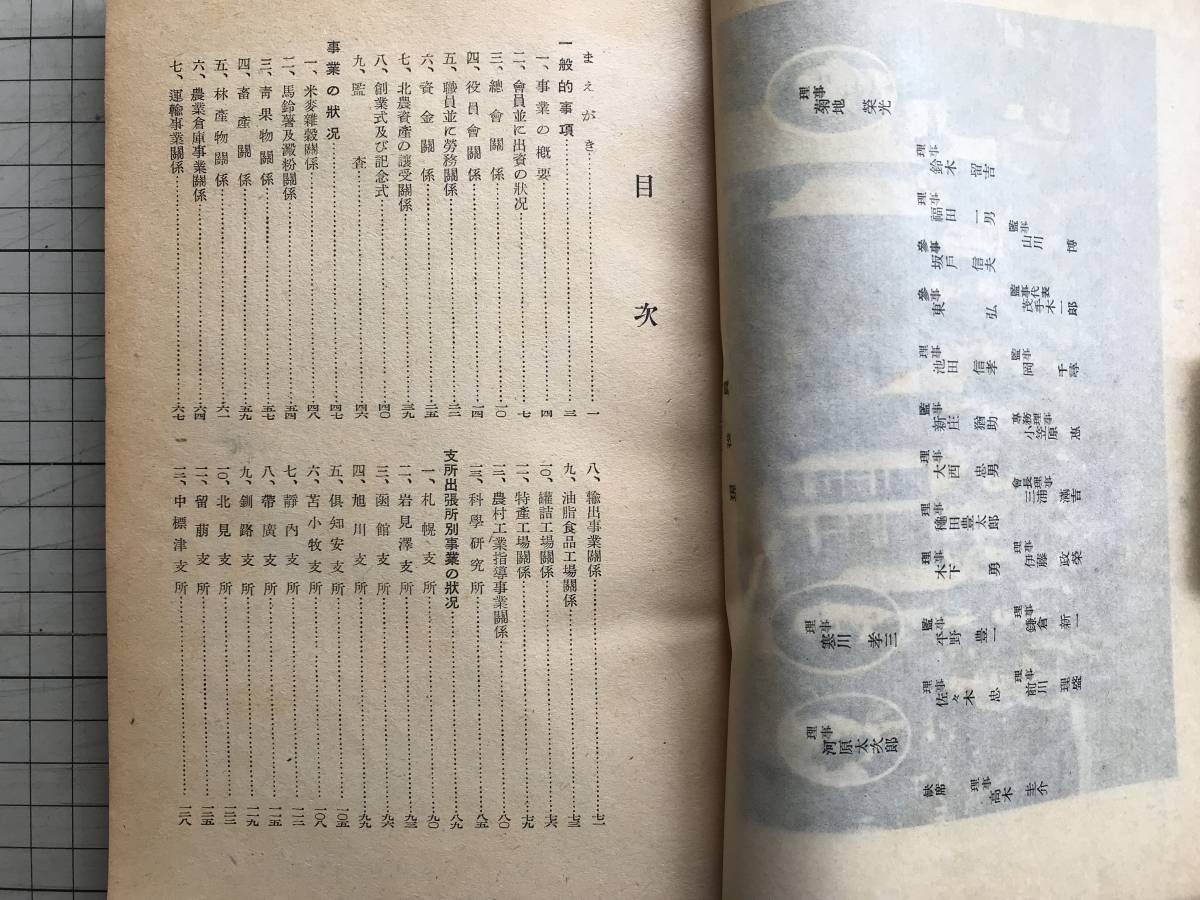 目次
まえがき……一
一般的事項……三
一、事業の概要……四
二、會員並に出資の狀況……七
三、總會關係……一〇
四、役員會關係……一四
五、職員並に勞務關係……三二
六、資金關係……三五
七、北農資產の讓受關係……三九
八、創業式及び記念式……四〇
九、監査……四六
事業の狀況……四七
一、米麥雜穀關係……四八
二、馬鈴薯及澱粉關係……五四
三、靑果物關係……五七
四、畜產關係……五九
五、林產物關係……六一
六、農業倉庫事業關係……六四
七、運輸事業關係……六七
八、輸出事業關係……七一
九、油脂食品工場關係……七三
一〇、罐詰工場關係……七六
一一、特產工場關係……七九
一二、農村工業指導事業關係……八〇
一三、科學硏究所……八五
支所出張所別事業の狀況……八九
一、札幌支所……九〇
二、岩見澤支所……九三
三、函館支所……九六
四、旭川支所……九九
五、俱知安支所……一〇五
六、苫小牧支所……一〇八
七、靜內支所……一一二
八、帶廣支所……一一五
九、釧路支所……一一九
一〇、北見支所……一二二
一一、留萠支所……一二五
一二、中標津支所……一二八
理事 菊地榮光
理事 鈴木留吉
理事 福田一男
監事 山川博
參事 坂戶信夫
參事 東弘
監事代表 茂手木一郎
理事 池田信孝
監事 岡千尋
監事 新庄猶助
專務理事 小笠原惠
理事 大西忠男
會長理事 三浦滿吉
理事 穗田豊太郎
理事 木下勇
理事 伊藤政榮
理事 寒川孝三
監事 平野豊一
理事 鎌倉新一
理事 佐々木忠
理事 前川理盛
理事 河原太次郎
缺席
理事 高木圭介